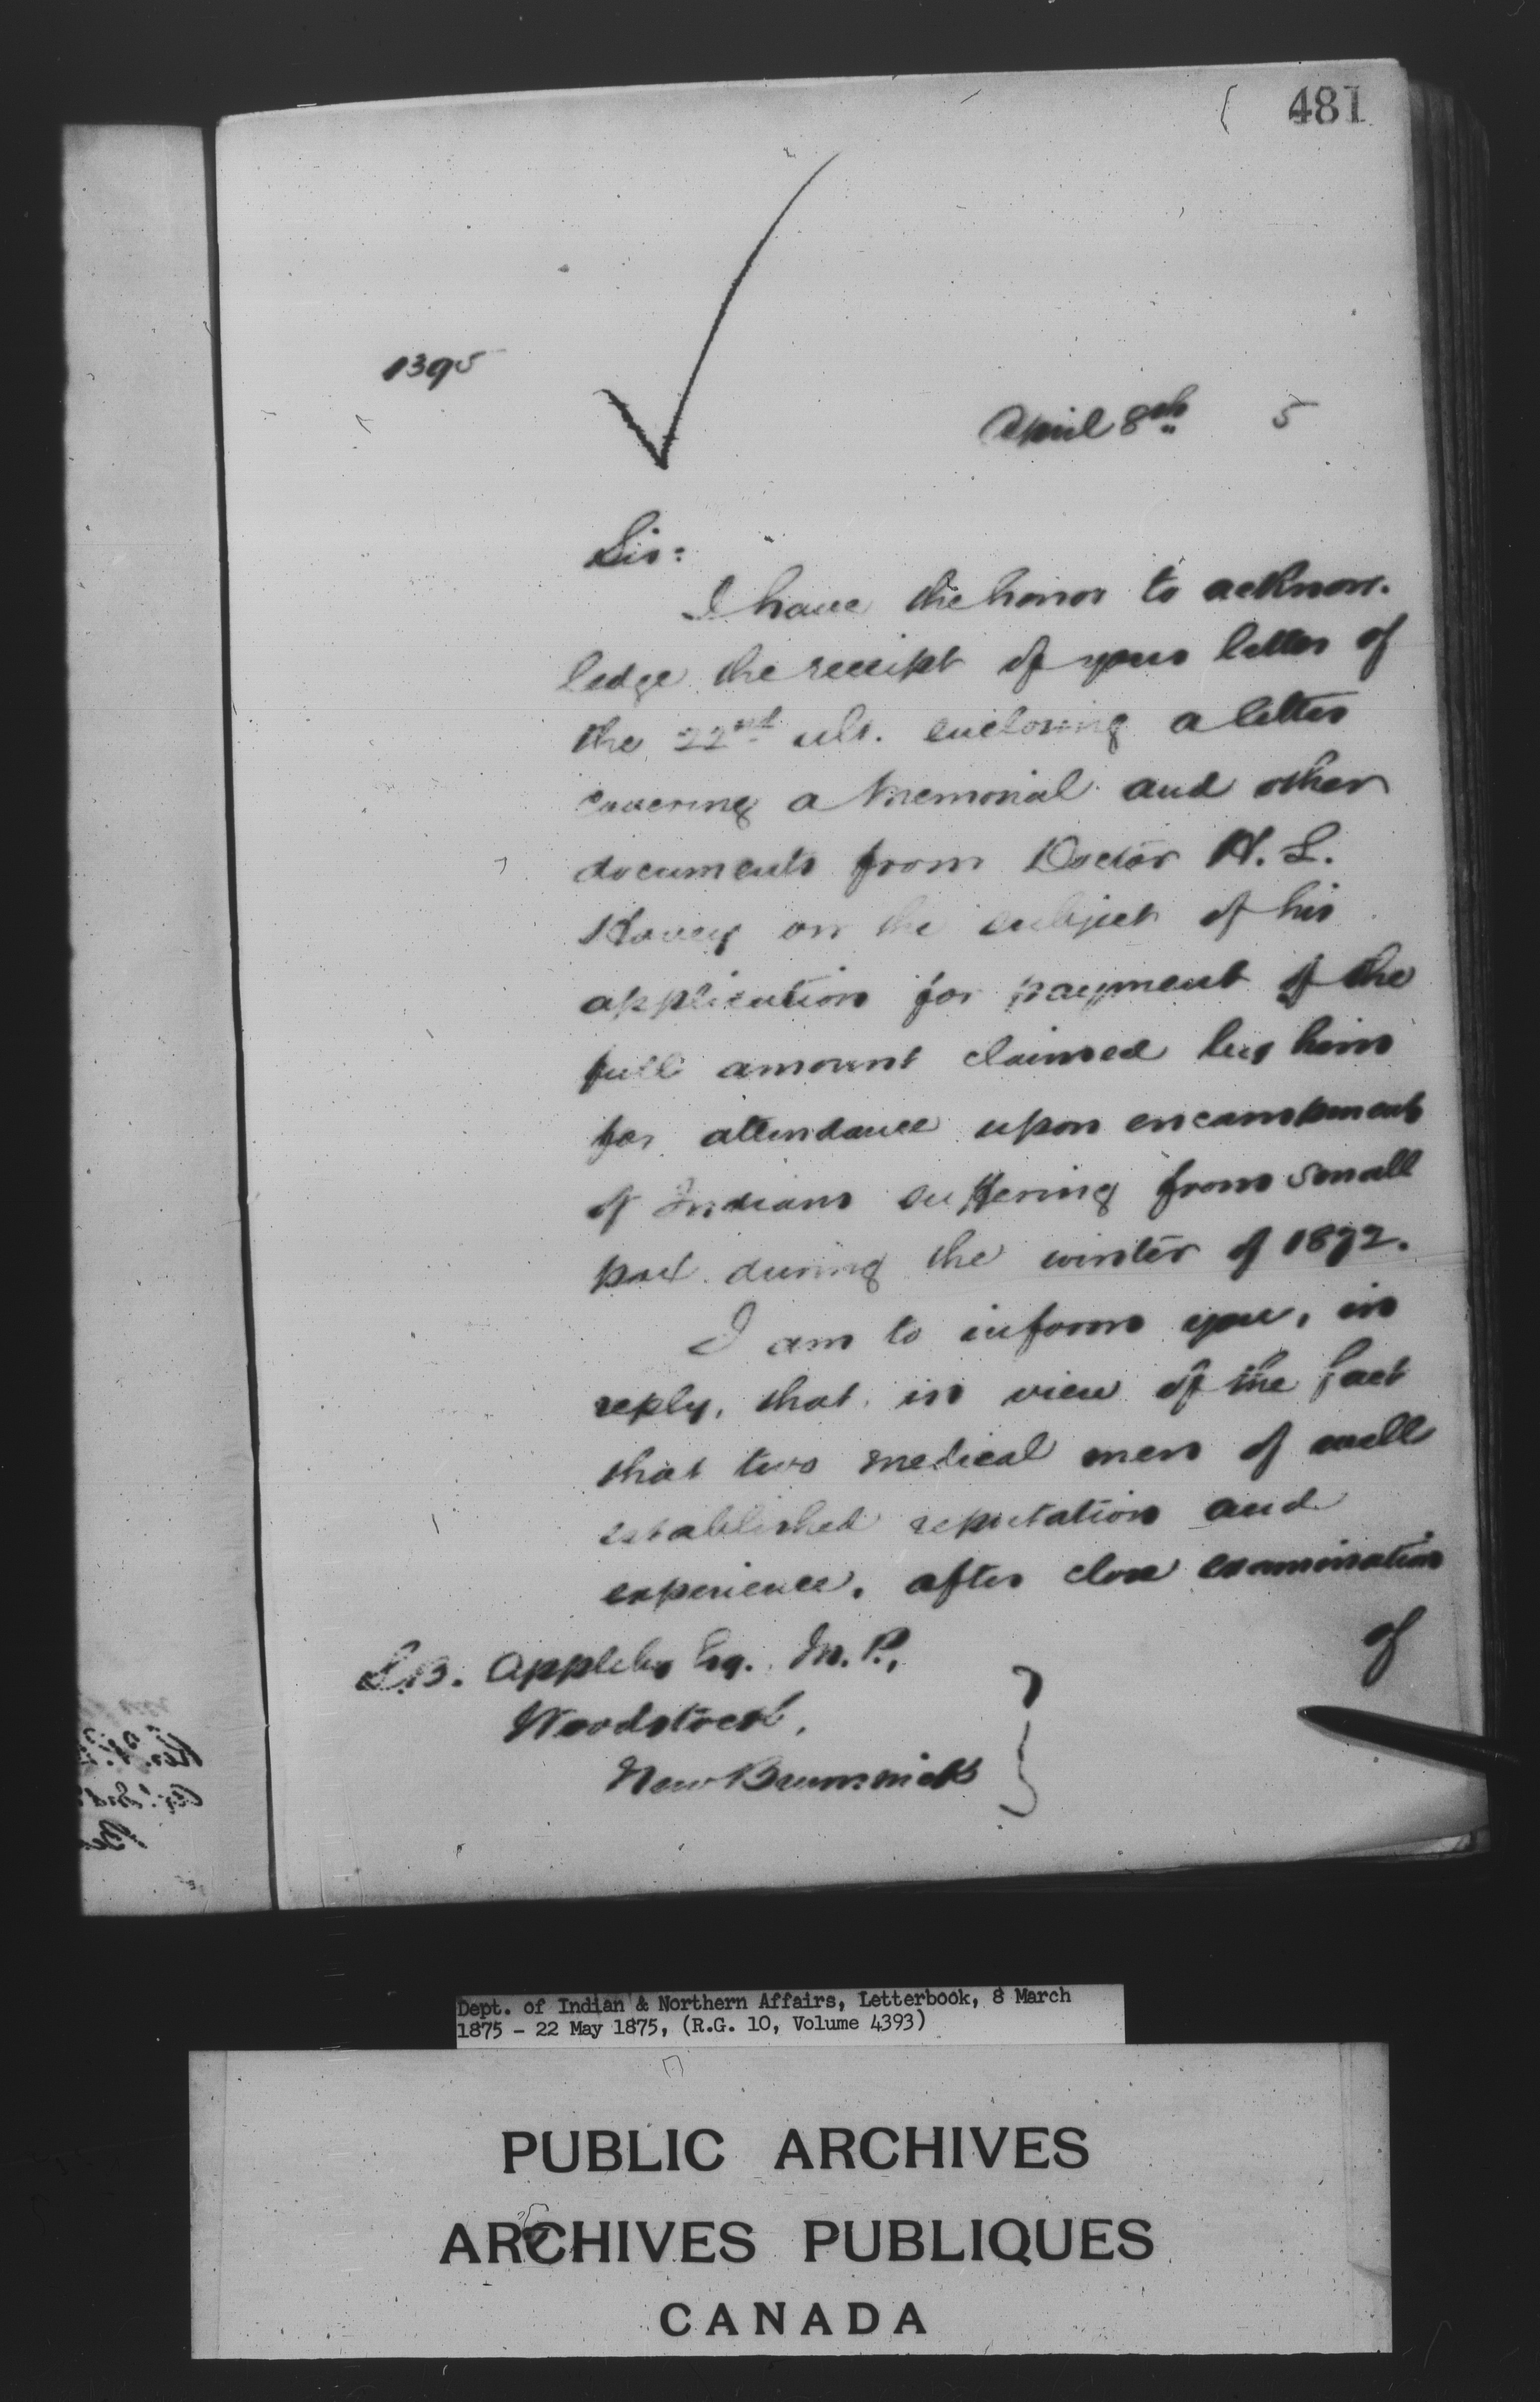 481
1395
April 8th 5
Sir:
I have the honor to acknow-
ledge the receipt of your letter of
the 22nd ult. enclosing a letter
covering a Memorial and other
documents from Doctor N. L.
on the subject of his
application for payment of the
full amount claimed by him
for attendance upon encampment
of Indians suffering from small
pox during the winter of 1872.
I am to inform you, in
reply, that in view of the fact
that two medical men of well
established reputation and
experience, after close examination
of
S.B. Appleby Esq. M.P.,
Woodstock,
New Brunswick
Dept. of Indian & Northern Affairs, Letterbook, 8 March
1875 - 22 May 1875, (R.G. 10, Volume 4393)
PUBLIC ARCHIVES
ARCHIVES PUBLIQUES
CANADA